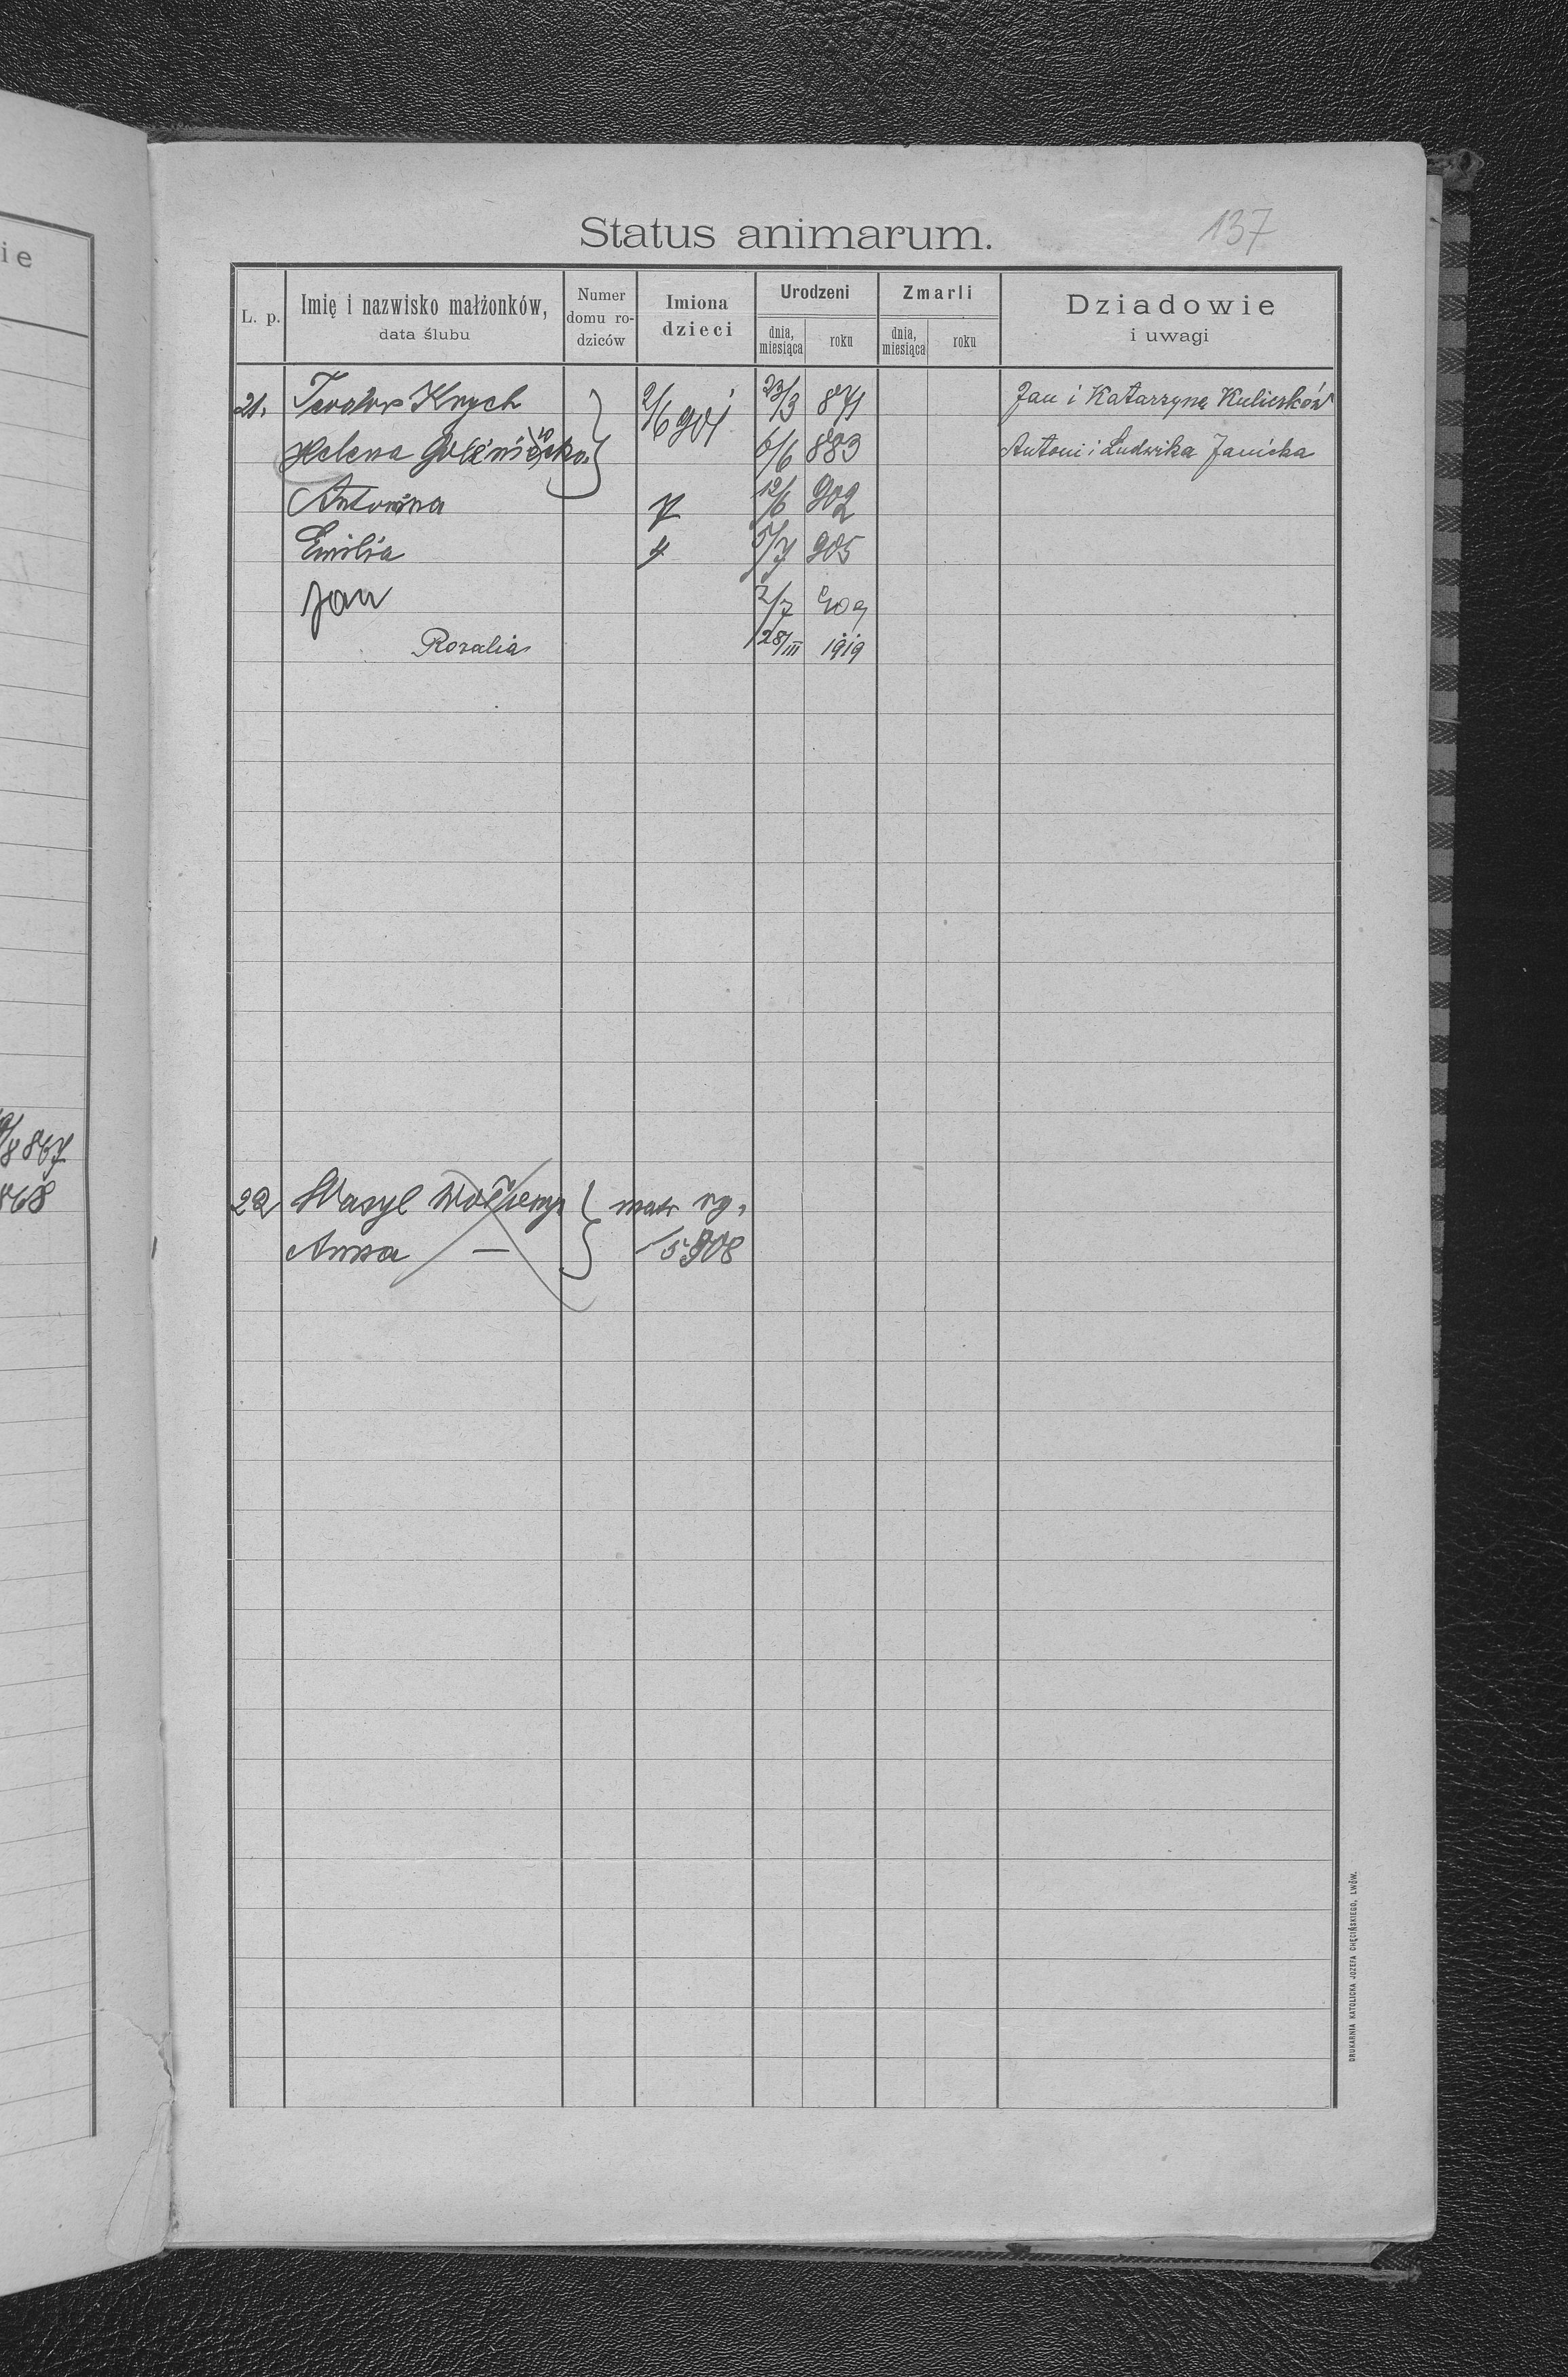 ie
8 867
868
137
Status animarum.
L. p. Imię i nazwisko małżonków, data ślubu Numer domu rodziców Imiona dzieci Urodzeni dnia, miesiąca roku Zmarli dnia, miesiąca roku Dziadowie i uwagi
21. Teodor Knych 2/6 901 23/3 871 Jan i Katarzyna
Helena 6/6 883 Antoni i Ludwika Janicka
Antonina 12/6 902
Emilia 5/7 905
Jan 2/7 909
Rozalia 28/III 1919
22 Wasyl matr rg.
Anna — 15 908
DRUKARNIA KATOLICKA JÓZEFA CHĘCIŃSKIEGO, LWÓW.